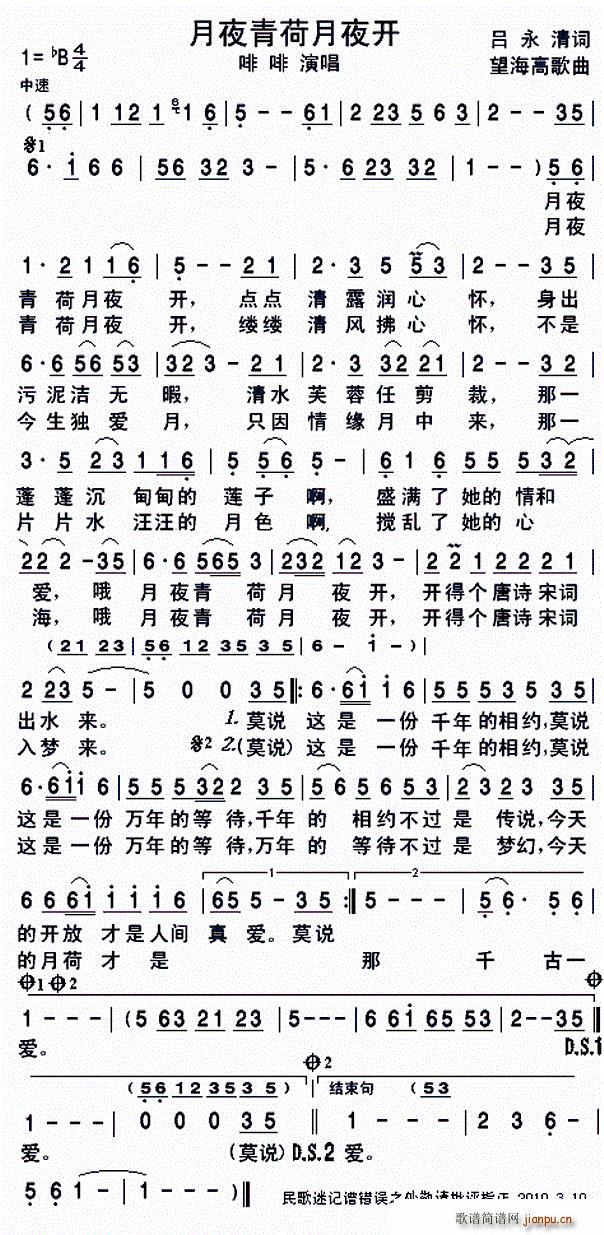 月夜青荷月夜开
1=♭B 4/4
啡 啡 演唱
吕 永 清词
望海高歌曲
中速
( 56 | 1 12 1 6 1 6 | 5 - - 61 | 2 23 5 6 3 | 2 - - 35 |
𝄋1
6· i 6 6 | 56 32 3 - | 5· 6 23 32 | 1 - - ) 5 6 |
月夜
月夜
1· 2 1 1 6 | 5 - - 2 1 | 2· 3 5 5 3 | 2 - - 3 5 |
青 荷 月夜 开， 点点 清 露 润 心 怀， 身出
青 荷 月夜 开， 缕缕 清 风 拂 心 怀， 不是
6· 6 56 53 | 32 3 - 2 1 | 2· 3 32 21 | 2 - - 3 2 |
污 泥洁 无 暇， 清水 芙 蓉 任 剪 裁， 那一
今 生独 爱 月， 只因 情 缘 月 中 来， 那一
3· 5 23 116 | 5 56 5 - | 6 6 6 55 532
蓬 蓬 沉 甸甸的 莲 子 啊， 盛满了 她的 情和
片 片 水 汪汪的 月 色 啊， 搅乱了 她的 心
22 2 - 35 | 6·6 565 3 | 232 12 3 - | 2 2 1 2 2 2 1 |
爱， 哦 月夜青 荷月 夜 开， 开得个唐诗宋词
海， 哦 月夜青 荷月 夜 开， 开得个唐诗宋词
( 21 23 | 56 12 35 35 | 6 - i - ) |
2 23 5 - | 5 0 0 3 5 ‖: 6· 6i i 6 | 5 5 5 3 5 3 5 |
出水 来。 1. 莫说 这是 一份 千年的相约，莫说
入梦 来。 𝄋2 2.(莫说) 这是 一份 千年的相约，莫说
6· 6ii 6 | 5 5 5 32 2 5 | 5 6 5 6 5 3 | 2 3 23 3 5 |
这是一份 万年的等 待，千年 的 相约不过是 传说，今天
这是一份 万年的等 待，万年 的 等待不过是 梦幻，今天
1
2
6 6 6i i i i 6 | 65 5 - 35 :‖ 5 - - - | 5 6· 5 6 |
的开放 才是人间 真 爱。莫说
的月荷 才 是 那 千 古一
𝄌1 𝄌2
𝄌
1 - - - | (5 63 21 23 | 5 - - - | 6 6i 65 53 | 2 - - 35 ‖
爱。
D.S.1
𝄌2
( 56 12 35 3 5 ) | 结束句 ( 53
1 - - - | 0 0 0 3 5 ‖ 1 - - - | 2 3 6 - |
爱。 (莫说) D.S.2 爱。
5 6 1 - | 1 - - ) ‖
民歌迷记谱错误之处敬请批评指正 2010.3.10
歌谱简谱网 jianpu.cn